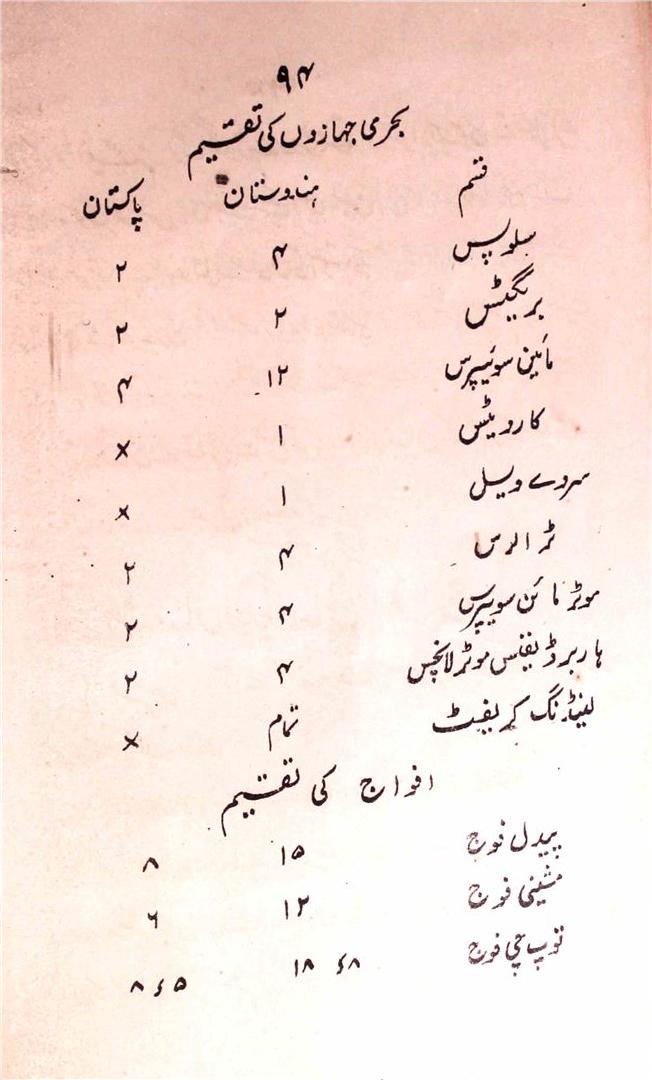 ۹۴
بحری جہازوں کی تقسیم
قسم ہندوستان پاکستان
سلوپس ۴ ۲
بریگیٹس ۲ ۲
مائین سوئیپرس ۱۲ ۴
کارویٹس ۱ ×
سروے ویسل ۱ ×
ٹرالرس ۴ ۲
موٹر مائن سویپرس ۴ ۲
ہاربر ڈیفنس موٹر لانچس ۴ ۲
لینڈنگ کریفٹ تمام ×
افواج کی تقسیم
پیدل فوج ۱۵ ۸
مشینی فوج ۱۲ ۶
توپ چی فوج ۱۸ ۶۸ ۸ ۶ ۵